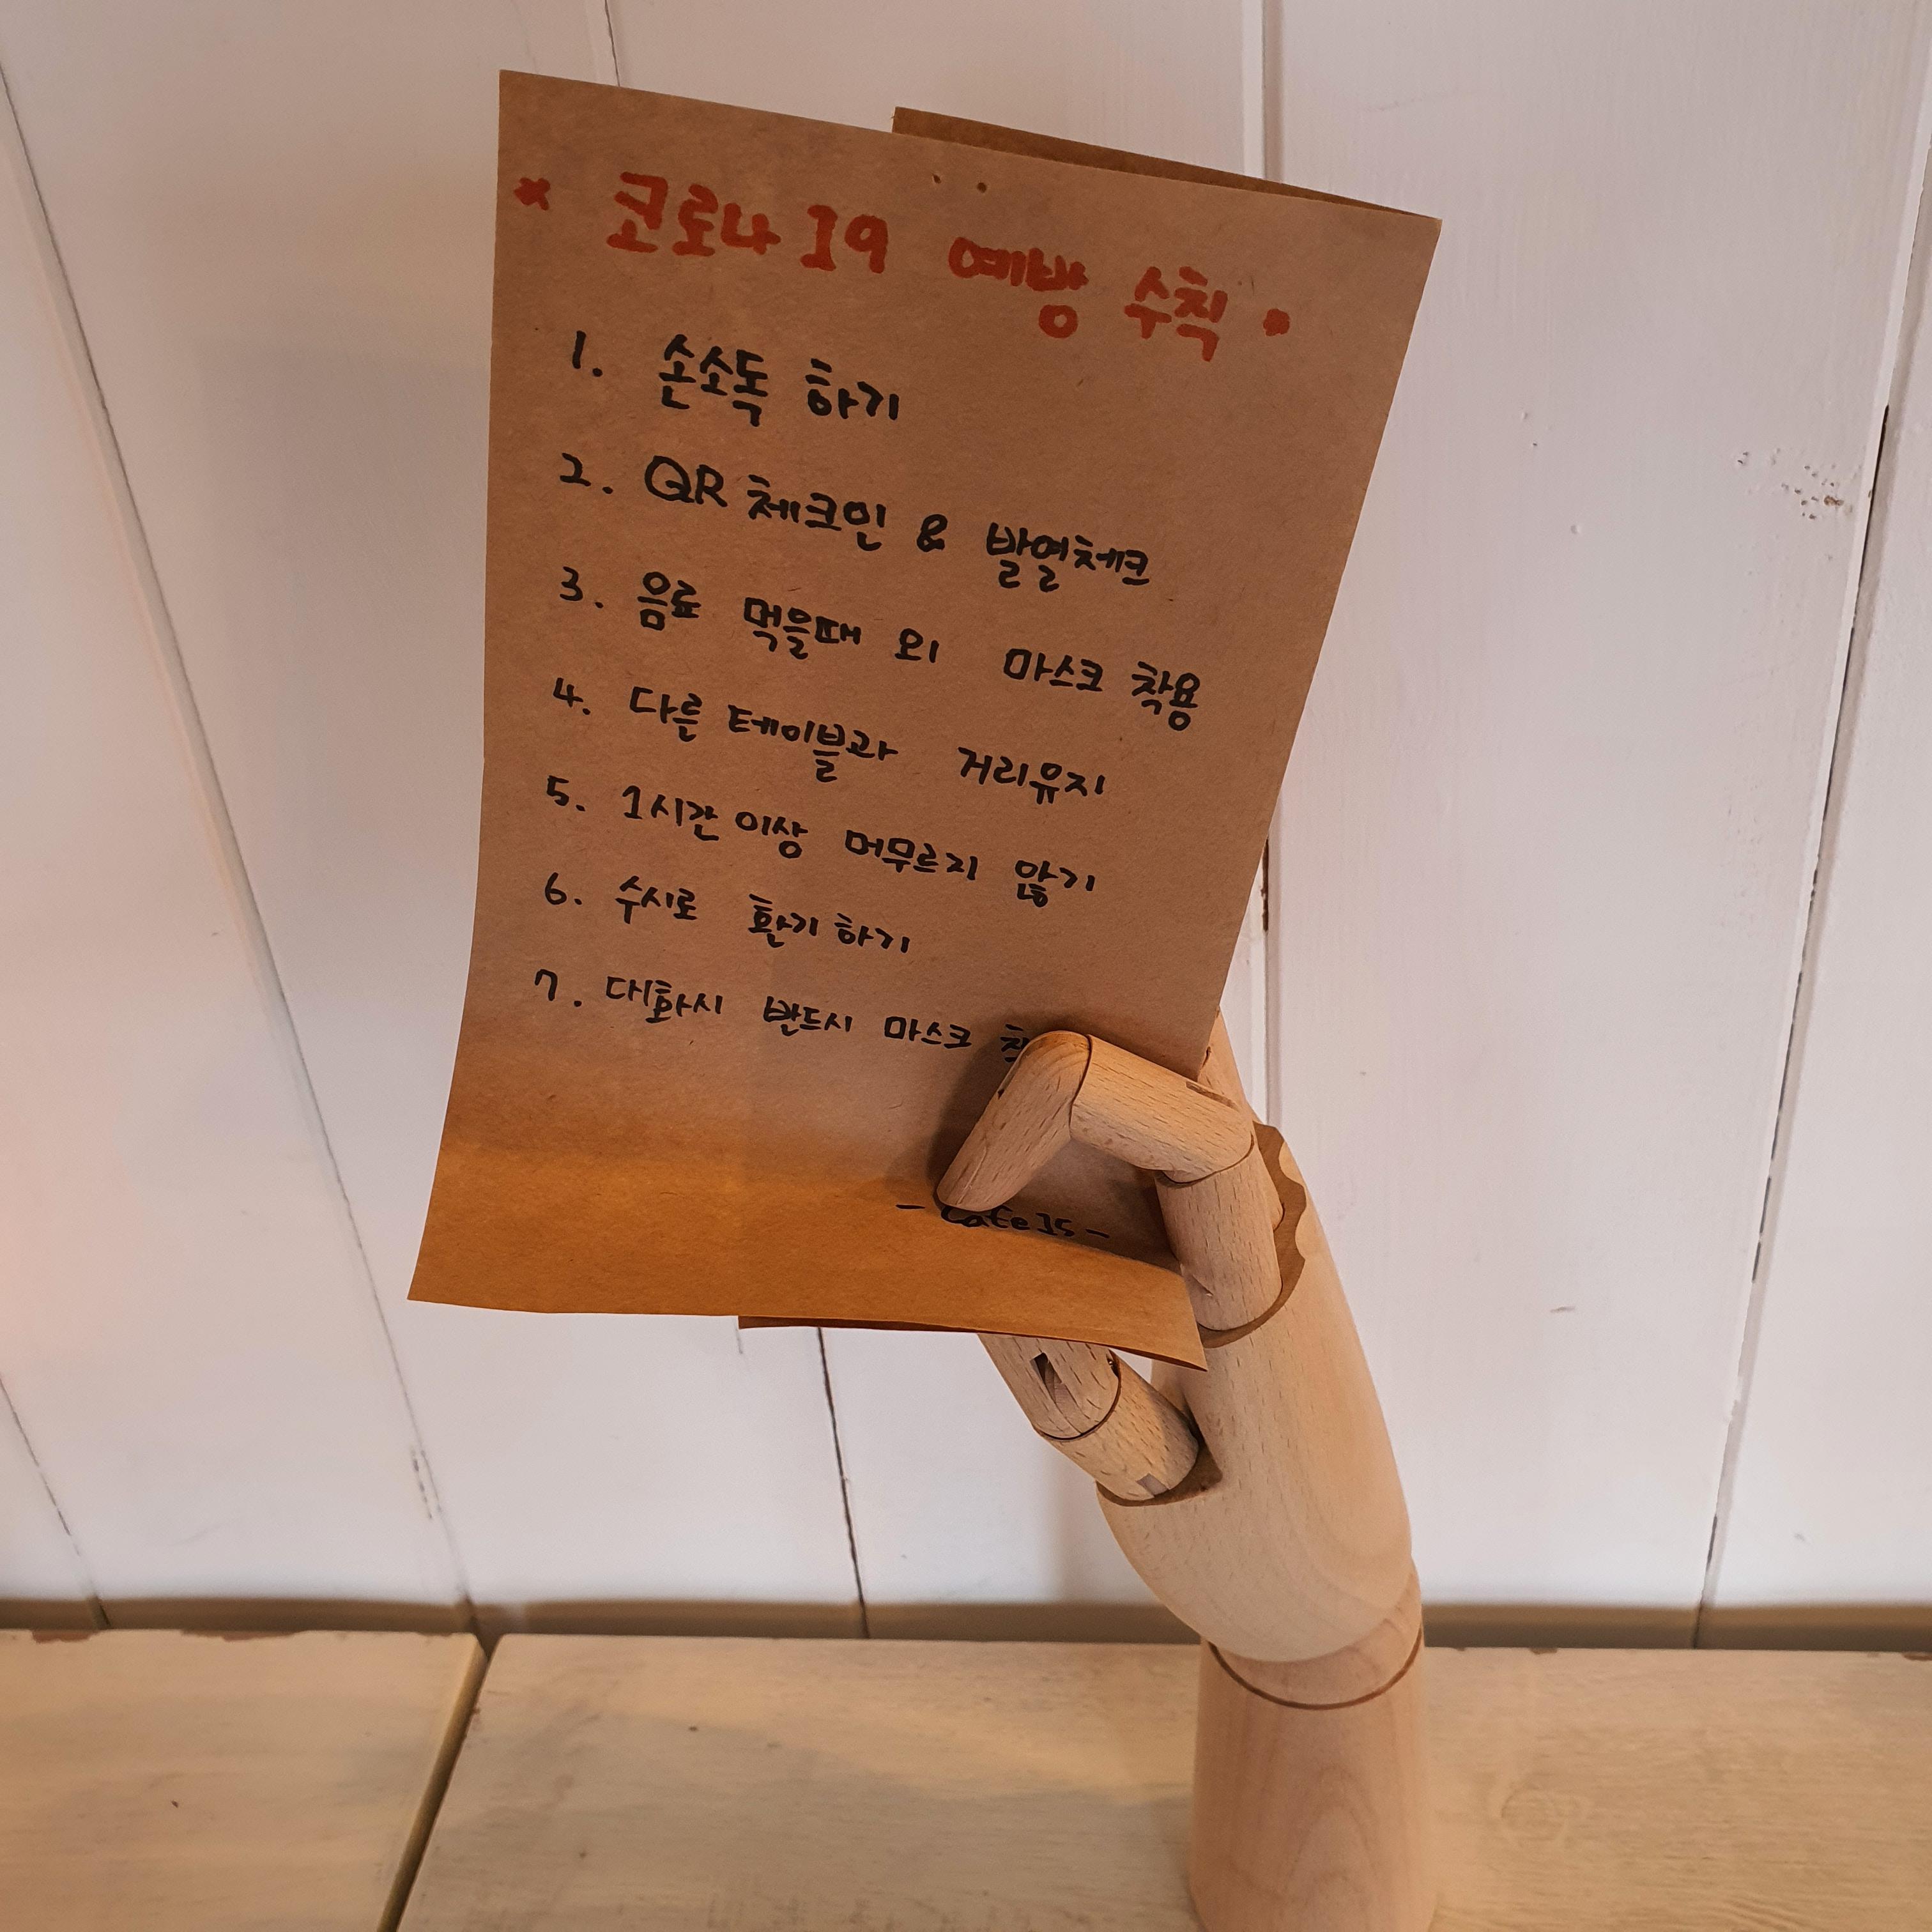 * 코로나 19 예방 수칙 *
1. 손소독 하기
2. QR 체크인 & 발열체크
3. 음료 먹을때 외 마스크 착용
4. 다른 테이블과 거리유지
5. 1시간 이상 머무르지 않기
6. 수시로 환기 하기
7. 대화시 반드시 마스크
- Cafe 15 -